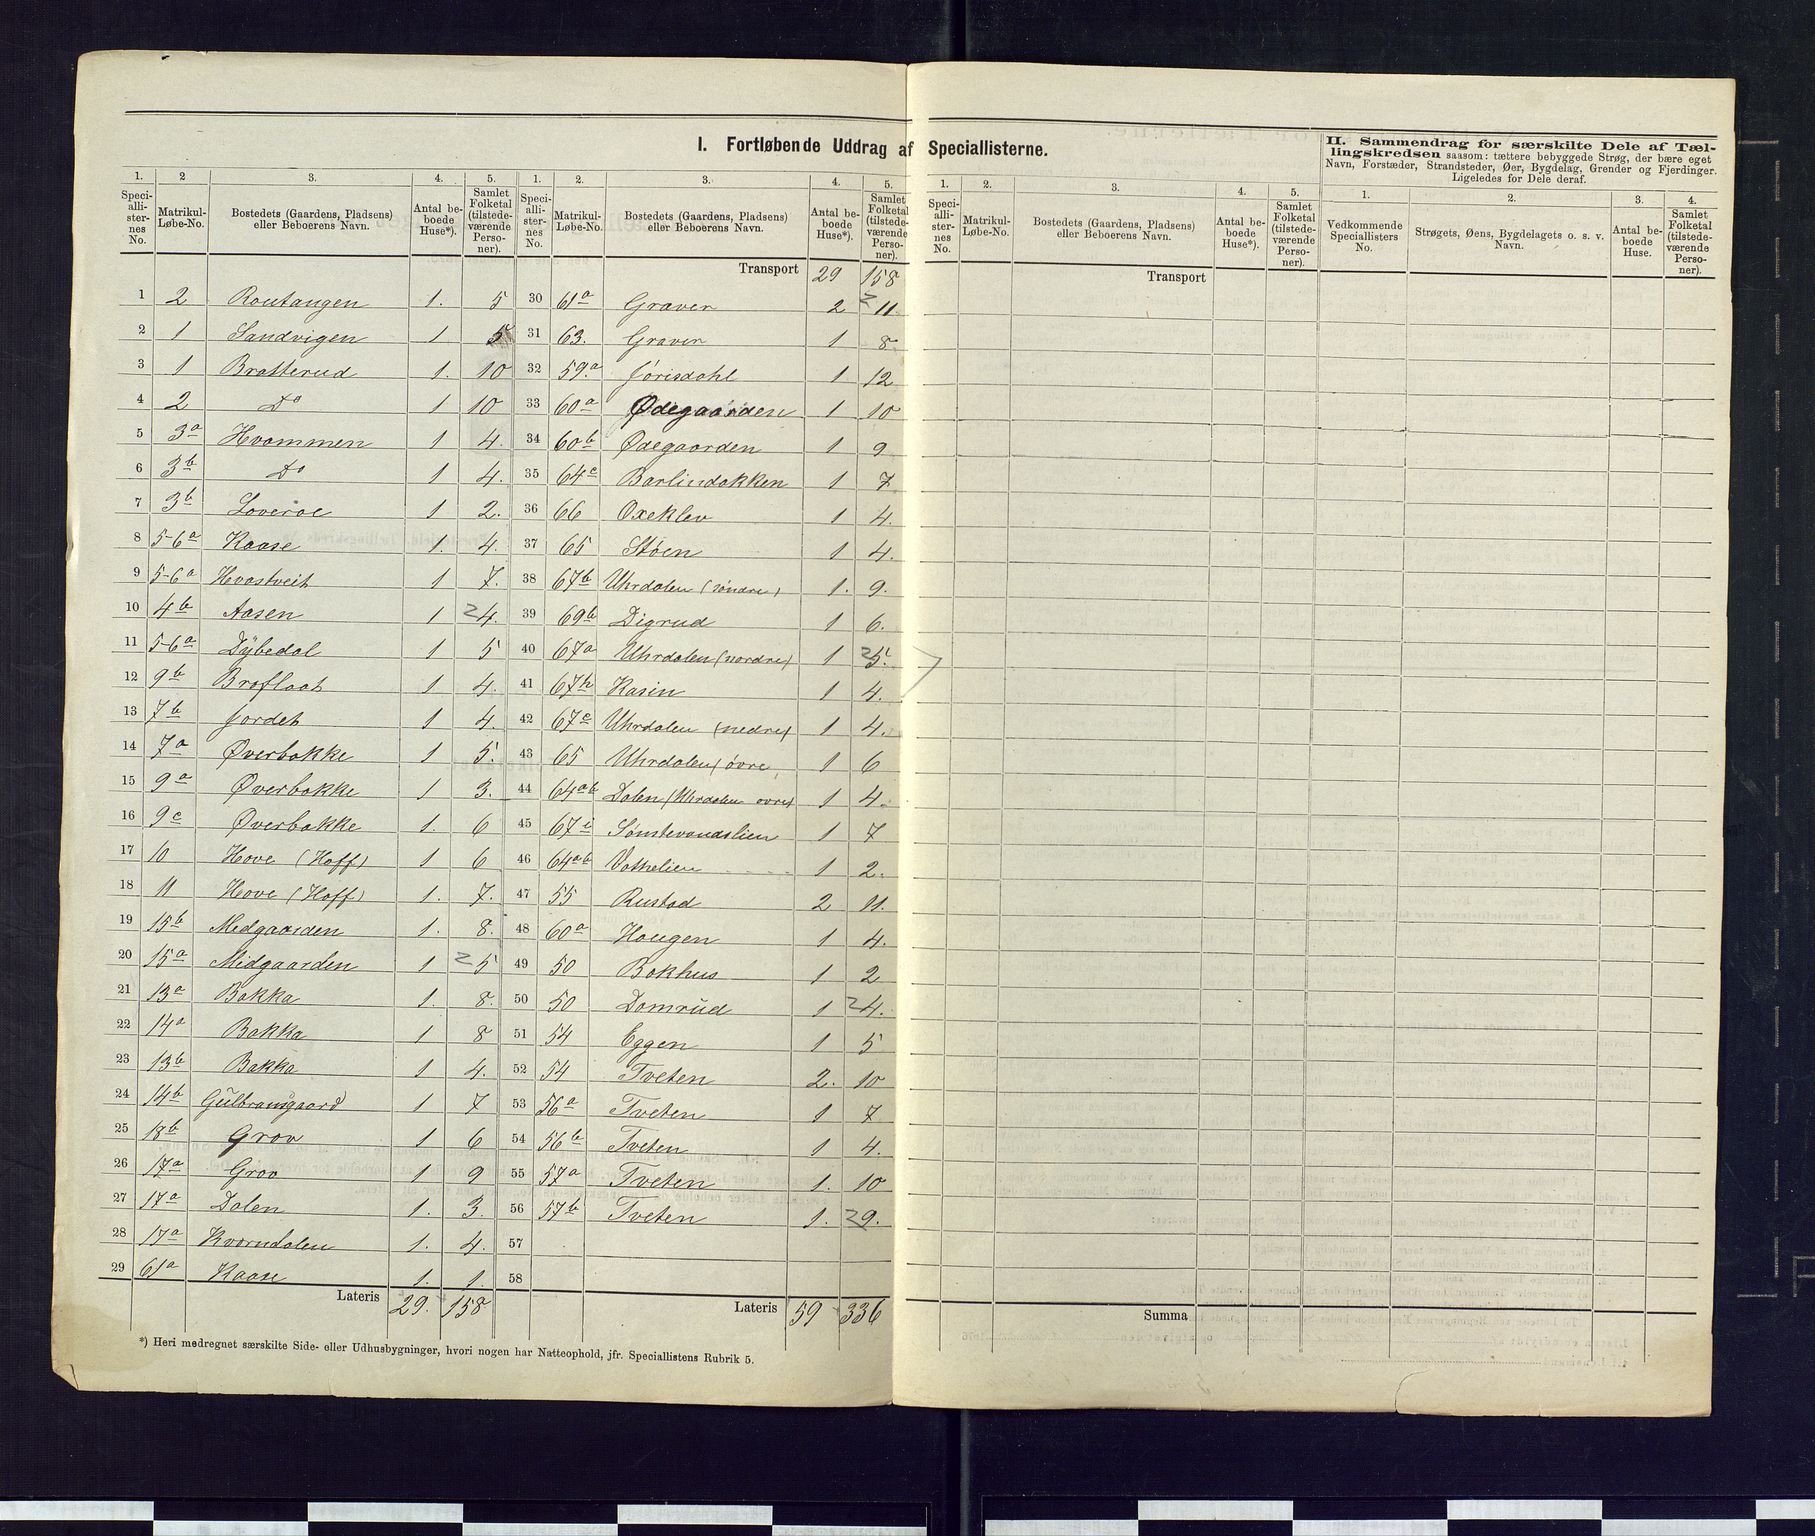 I. Fortløbende Uddrag af Speciallisterne.
1. 2 3. 4. 5.
Speciallisternes No. Matrikul-Løbe-No. Bostedets (Gaardens, Pladsens) eller Beboerens Navn. Antal beboede Huse*). Samlet Folketal (tilstedeværende Personer).
1 2 Routangen 1. 5
2 1 Sandvigen 1 5
3 1 Bratterud 1. 10
4 2 Do 1 10
5 3a Hvammen 1 4.
6 3b Do 1 4.
7 3b Loveroe 1 2.
8 5-6a Kaase 1. 4.
9 5-6a Hvastveit 1 7.
10 4b Aasen 1 2 4.
11 5-6a Dÿbedal 1 5
12 9b Braflaat 1 4.
13 7b Jordet 1 4.
14 7a Øverbakke 1 5.
15 9a Øverbakke 1 3.
16 9c Øverbakke 1. 6
17 10 Hove (Hoff) 1 6
18 11 Hove (Hoff) 1. 7.
19 15b Medgaarden 1. 8.
20 15a Midgaarden 1 2 5
21 13a Bakka 1. 8.
22 14a Bakka 1 8
23 13b Bakka 1 4.
24 14b Gulbransgaard 1 7
25 18b Grav 1 6
26 17a Grav 1 9
27 17a Dalen 1. 3.
28 17a Kvarndalen 1. 4.
29 61a Kaase 1. 1.
Lateris 29. 158
1. 2. 3. 4. 5.
Speciallisternes No. Matrikul-Løbe-No. Bostedets (Gaardens, Pladsens) eller Beboerens Navn. Antal beboede Huse*). Samlet Folketal (tilstedeværende Personer).
Transport 29 158
30 61a Graver 2 2 11
31 63. Graver 1 8
32 59.a Jørisdahl 1 12
33 60a Ødegaarden 1 10
34 60b Ødegaarden 1 9
35 64c Barlindakken 1 7
36 66 Oxeklev 1 4.
37 65 Støen 1 4.
38 67b Uhrdalen (søndre) 1. 9.
39 69b Digrud 1 6.
40 67a Uhrdalen (nordre) 1 2 5.
41 67h Kasin 1 4.
42 67c Uhrdalen (nedre) 1 4.
43 65 Uhrdalen (øvre 1 6
44 64ab Dalen (Uhrdalen øvre) 1 4.
45 67i Sømtevandslien 1 7
46 64ab Vathelien 1 2.
47 55 Rustad 2 11.
48 60a Haugen 1 4.
49 50 Bakhus 1 2
50 50 Domrud 1 2 4.
51 54 Eggen 1 5
52 54 Tveten 2. 10
53 56a Tveten 1 7
54 56b Tveten 1 4.
55 57a Tveten 1. 10
56 57b Tveten 1. 2 9.
57
58
Lateris 59 336
*) Heri medregnet særskilte Side- eller Udhusbygninger, hvori nogen har Natteophold, jfr. Speciallistens Rubrik 5.
1. 2. 3. 4. 5.
Speciallisternes No. Matrikul-Løbe-No. Bostedets (Gaardens, Pladsens) eller Beboerens Navn. Antal beboede Huse*). Samlet Folketal (tilstedeværende Personer).
Transport
Summa
II. Sammendrag for særskilte Dele af Tællingskredsen saasom: tættere bebyggede Strøg, der bære eget
Navn, Forstæder, Strandsteder, Øer, Bygdelag, Grender og Fjerdinger.
Ligeledes for Dele deraf.
1. 2. 3. 4.
Vedkommende Speciallisters No. Strøgets, Øens, Bygdelagets o. s. v. Navn. Antal beboede Huse. Samlet Folketal (tilstedeværende Personer).